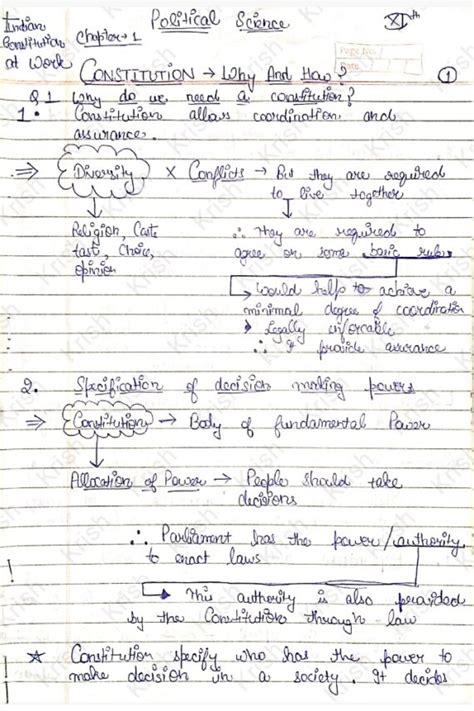 Indian
Constitution
at Work
Chapter-1
Political Science
XIth
Page No.
Date
CONSTITUTION → Why And How?
1
Q1 Why do we need a constitution?
1. Constitution allows coordination and
assurance.
⇒ Diversity × Conflicts → But they are required
to live together
↓ ↓
Religion, Caste
tast, Choice,
opinion
∴ they are required to
agree on some basic rules
↳ Would help to achieve a
minimal degree of coordination
→ Legally inforcable
∴ It provide assurance
2. Specification of decision making powers
⇒ Constitution → Body of fundamental Power
↓
Allocation of Power → People should take
decisions
∴ Parliament has the power/authority
to enact laws
↳ This authority is also provided
by the Constitution through law
☆ Constitution specify who has the power to
make decision in a society. It decides
Krish